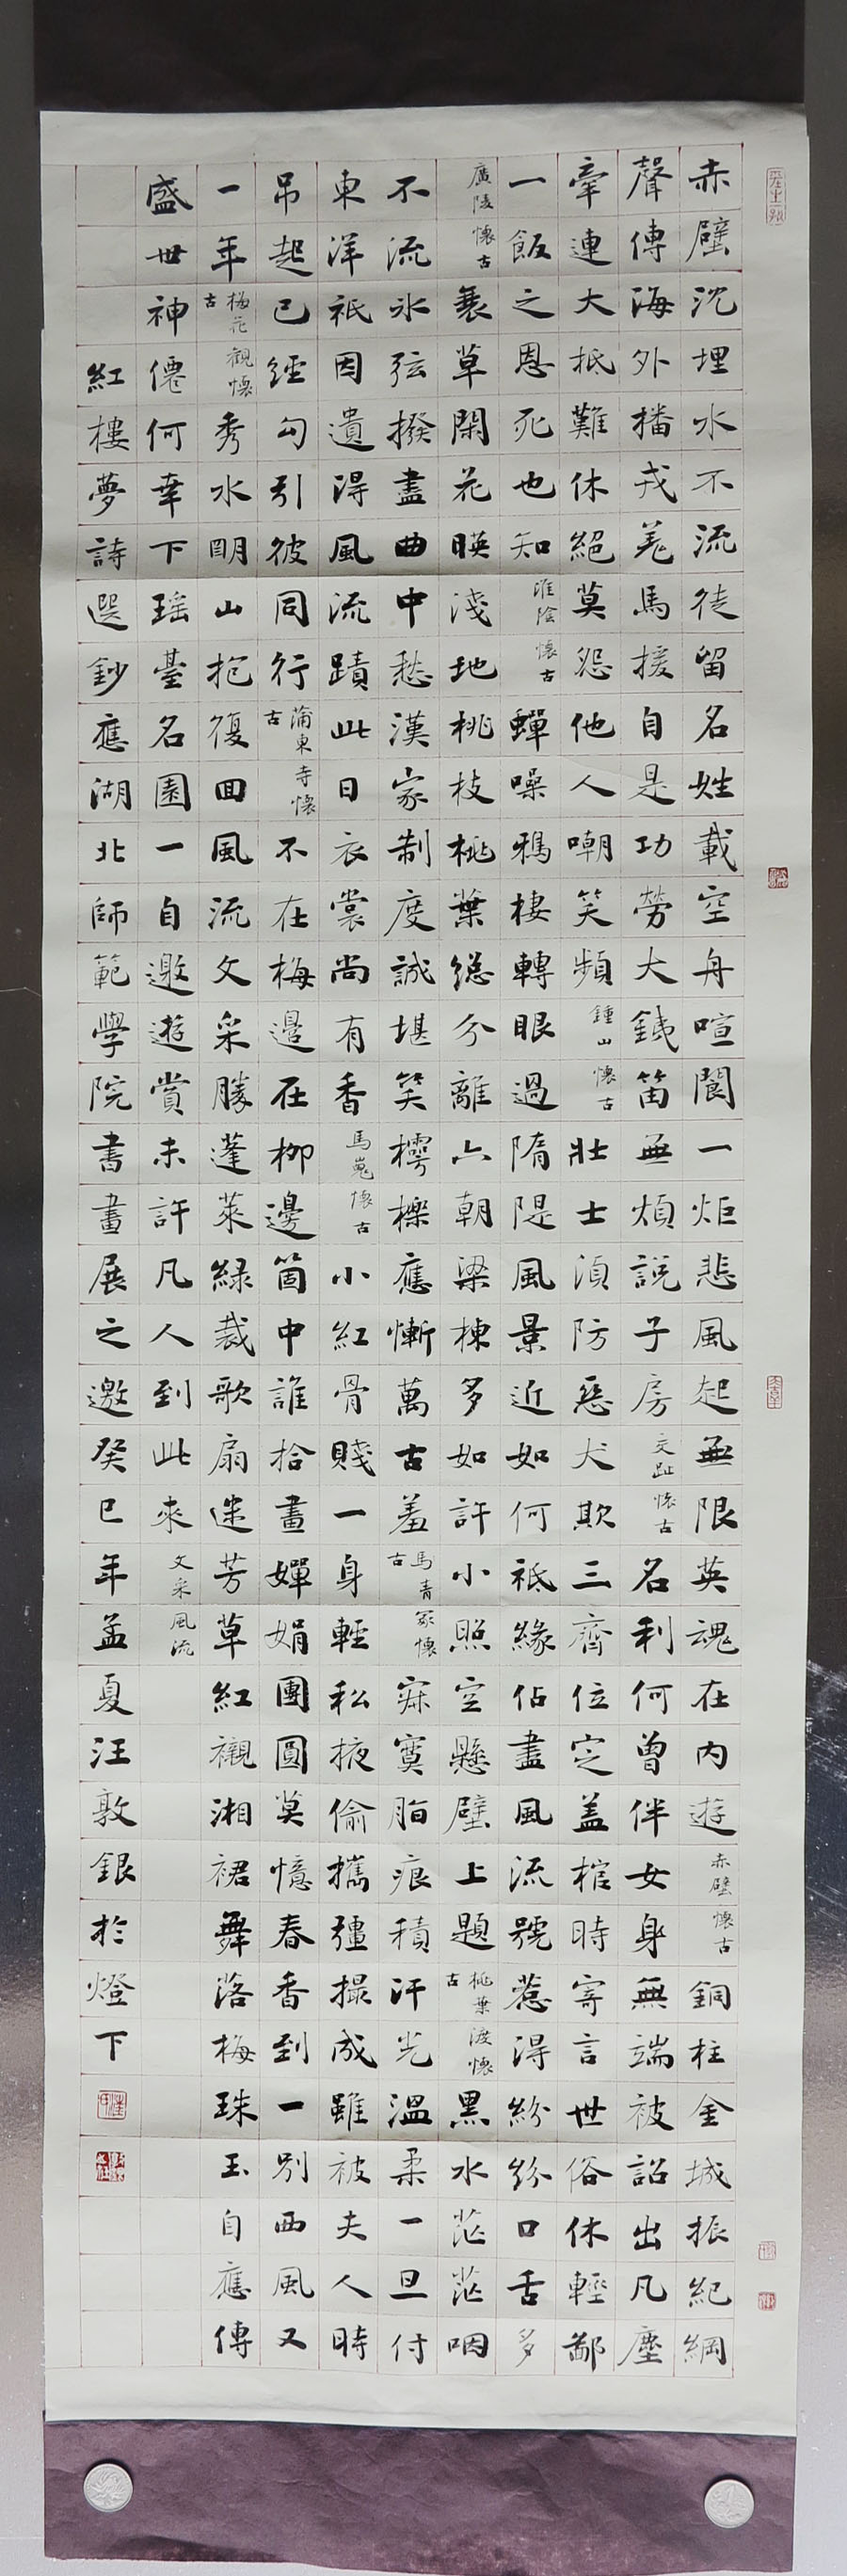 赤壁沈埋水不流徒留名姓載空舟喧闐一炬悲風起無限英魂在内遊赤壁懷古銅柱金城振紀綱
聲傳海外播戎羌馬援自是功勞大鐵笛無煩說子房交趾懷古名利何曾伴女身無端被詔出凡塵
牽連大抵難休絕莫怨他人嘲笑頻鍾山懷古壯士須防惡犬欺三齊位定蓋棺時寄言世俗休輕鄙
一飯之恩死也知淮陰懷古蟬噪鴉棲轉眼過隋隄風景近如何祗緣佔盡風流號惹得紛紛口舌多
廣陵懷古衰草閑花映淺地桃枝桃葉總分離六朝梁棟多如許小照空懸壁上題桃葉渡懷古黑水茫茫咽
不流冰弦撥盡曲中愁漢家制度誠堪笑樗櫟應慚萬古羞馬青冢懷古寂寞脂痕積汗光溫柔一旦付
東洋祇因遺得風流蹟此日衣裳尚有香馬嵬懷古小紅骨賤一身輕私掖偷攜彊撮成雖被夫人時
吊起已經勾引彼同行蒲東寺懷古不在梅邊在柳邊箇中誰拾畫嬋娟團圓莫憶春香到一別西風又
一年梅花觀懷古秀水明山抱復回風流文采勝蓬萊綠裁歌扇迷芳草紅襯湘裙舞落梅珠玉自應傳
盛世神僊何幸下瑶臺名園一自邀遊賞未許凡人到此來文采風流
紅樓夢詩選鈔應湖北師範學院書畫展之邀癸巳年孟夏汪敦銀於燈下